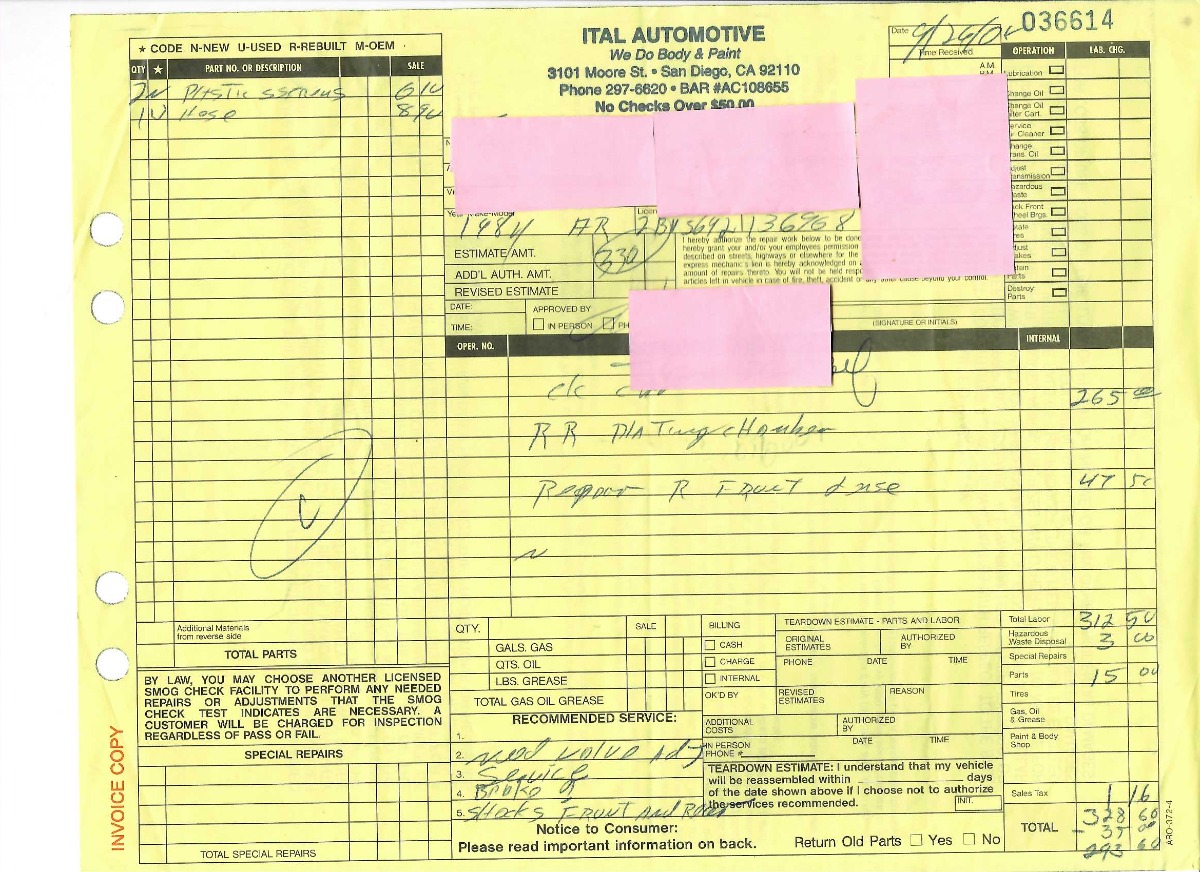 036614
ITAL AUTOMOTIVE
We Do Body & Paint
3101 Moore St. • San Diego, CA 92110
Phone 297-6620 • BAR #AC108655
No Checks Over $50.00
Date 9/26/0
Time Received
A.M.
★ CODE N-NEW U-USED R-REBUILT M-OEM
QTY ★ PART NO. OR DESCRIPTION SALE
2 N Plastic 6 10
1 N Hose 8 90
OPERATION LAB. CHG.
Lubrication
Change Oil
Change Oil
Cart.
Cleaner
Trans. Oil
Hazardous
Waste
Front
Wheel Brgs.
Parts
Destroy
Parts
Year-Make-Model
1984 AR 2BYS692 136968
ESTIMATE AMT. 330
ADD'L AUTH. AMT.
REVISED ESTIMATE
DATE:
APPROVED BY
TIME:
IN PERSON
I hereby authorize the repair work below to be done
hereby grant you and/or your employees permission
described on streets, highways or elsewhere for the
express mechanic's lien is hereby acknowledged on
amount of repairs thereto. You will not be held
articles left in vehicle in case of fire, theft, accident or any other cause beyond your control.
(SIGNATURE OR INITIALS)
OPER. NO. INTERNAL
265 00
R R
47 50
R Front
Additional Materials
from reverse side
TOTAL PARTS
BY LAW, YOU MAY CHOOSE ANOTHER LICENSED
SMOG CHECK FACILITY TO PERFORM ANY NEEDED
REPAIRS OR ADJUSTMENTS THAT THE SMOG
CHECK TEST INDICATES ARE NECESSARY. A
CUSTOMER WILL BE CHARGED FOR INSPECTION
REGARDLESS OF PASS OR FAIL.
SPECIAL REPAIRS
TOTAL SPECIAL REPAIRS
INVOICE COPY
QTY. SALE
GALS. GAS
QTS. OIL
LBS. GREASE
TOTAL GAS OIL GREASE
RECOMMENDED SERVICE:
1.
2. need valve Adj
3. Service
4. Brake
5. Shocks Front And Rear
Notice to Consumer:
Please read important information on back.
BILLING
CASH
CHARGE
INTERNAL
OK'D BY
TEARDOWN ESTIMATE - PARTS AND LABOR
ORIGINAL ESTIMATES
AUTHORIZED BY
PHONE DATE TIME
REVISED ESTIMATES
REASON
ADDITIONAL COSTS
AUTHORIZED BY
IN PERSON
PHONE #
DATE TIME
TEARDOWN ESTIMATE: I understand that my vehicle
will be reassembled within ____ days
of the date shown above if I choose not to authorize
the services recommended.
INIT.
Return Old Parts Yes No
Total Labor 312 50
Hazardous Waste Disposal 3 00
Special Repairs
Parts 15 00
Tires
Gas, Oil & Grease
Paint & Body Shop
Sales Tax 1 16
TOTAL 328 60
- 35 00
293 60
ARO-372-4